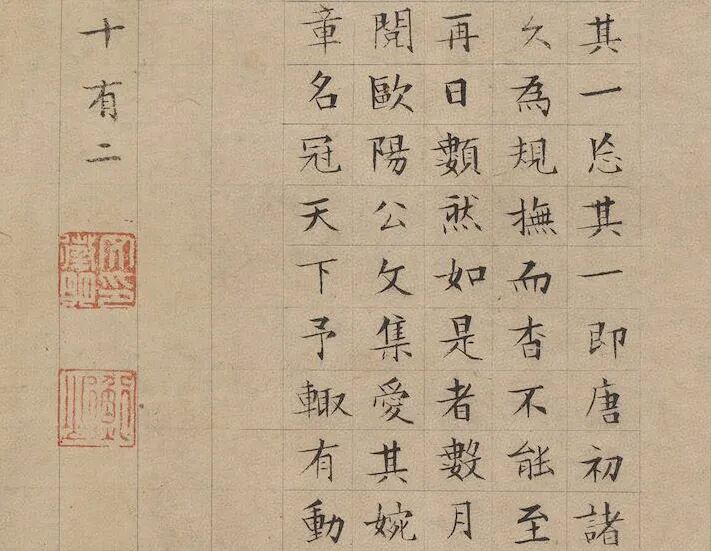 其一忘其一即唐初諸
久為規撫而杳不能至
再日然如是者數月
閱歐陽公文集愛其婉
章名冠天下予輙有動
十有二
文徵明印
衡山